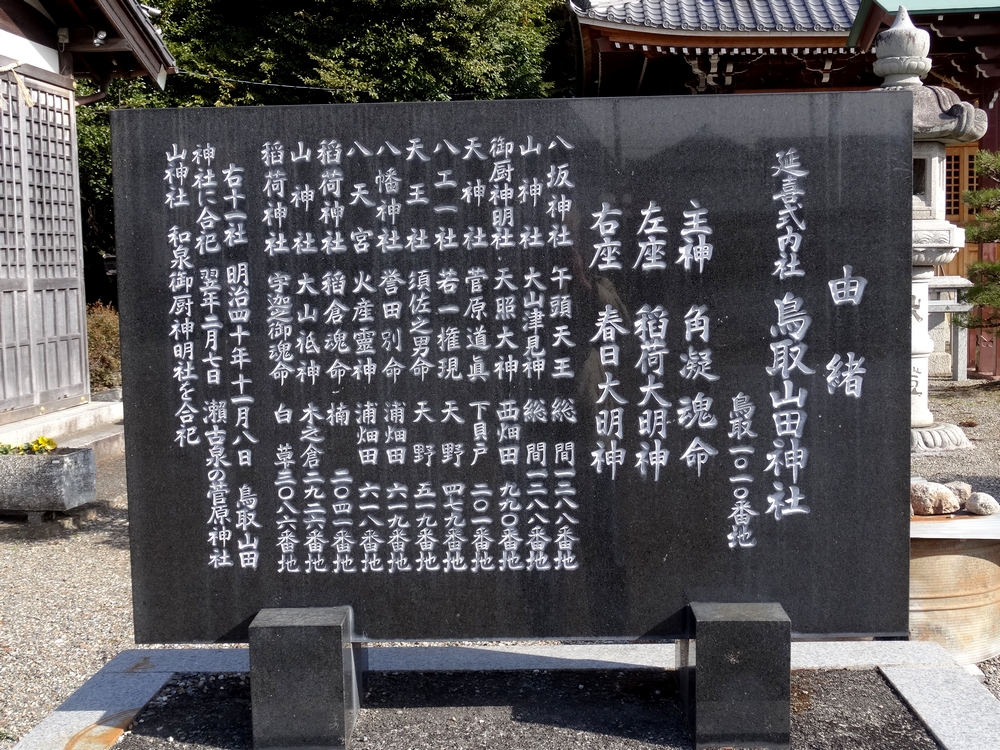 由緒
延喜式内社 鳥取山田神社
鳥取一〇一〇番地
主神 角凝魂命
左座 稲荷大明神
右座 春日大明神
八坂神社 午頭天王 総間一三八八番地
山神社 大山津見神 総間一三八八番地
御厨神明社 天照大神 西畑田九九〇番地
天神社 菅原道眞 下貝戸二〇一番地
八王一社 若一権現 天野四七九番地
天王社 須佐之男命 天野五一九番地
八幡神社 誉田別命 浦畑田六一九番地
八天宮 火産霊神 浦畑田六一八番地
稲荷神社 稲倉魂命 楠二〇四一番地
山神社 大山祇神 木之倉二九二六番地
稲荷神社 宇迦之御魂命 白草三〇八六番地
右十一社 明治四十年十一月八日 鳥取山田
神社に合祀 翌年二月七日 瀬古泉の菅原神社
山神社 和泉御厨神明社を合祀